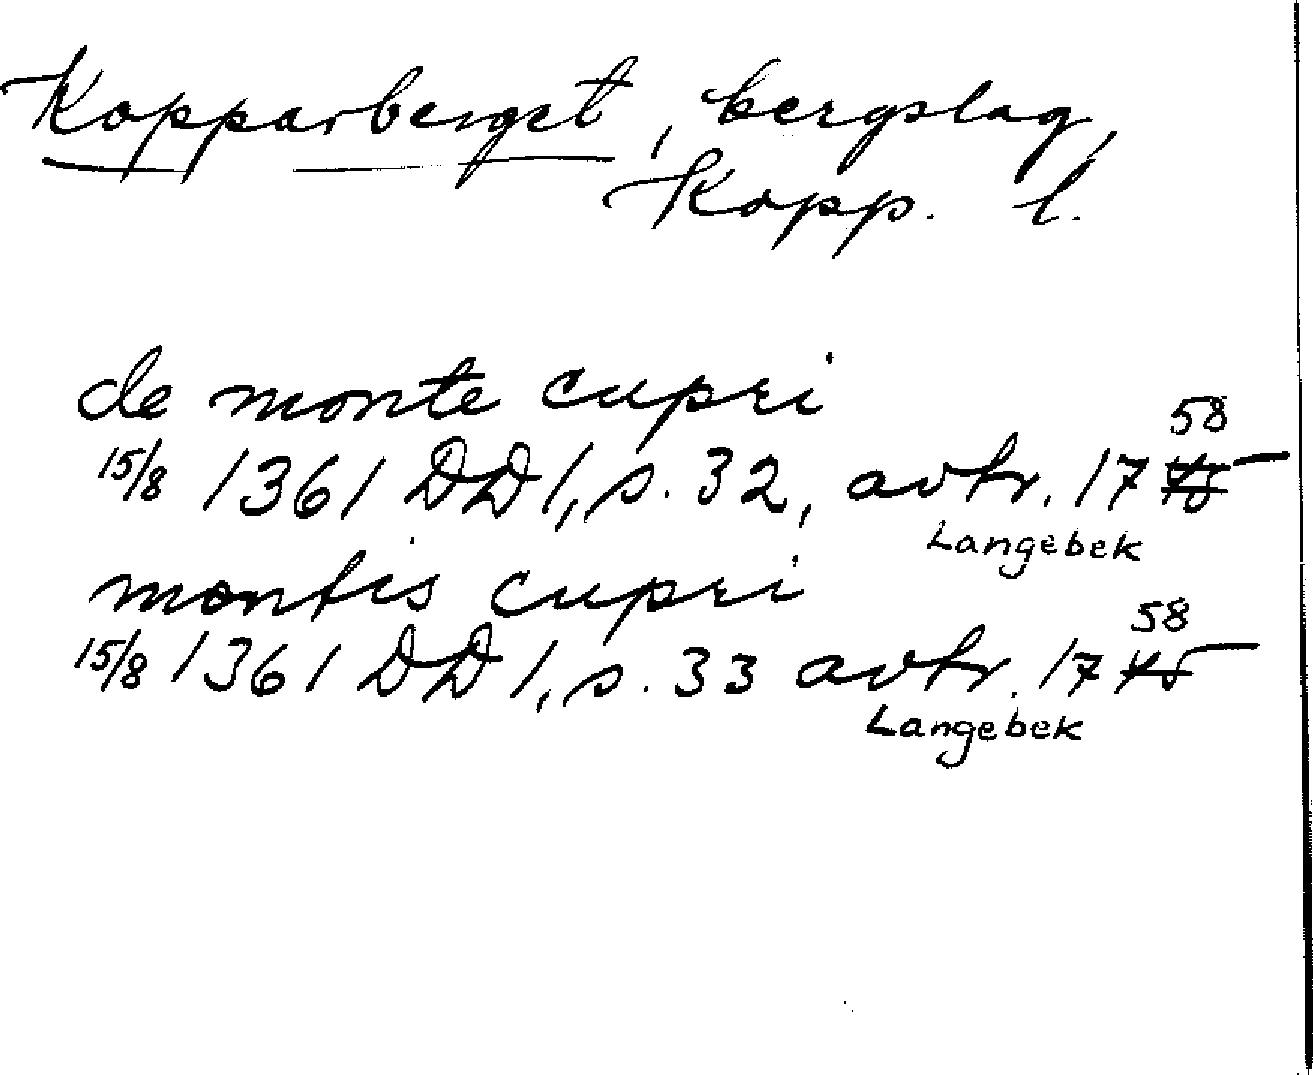 Kopparberget, bergslag,
Kopp. l.
de monte cupri
58
15/8 1361 DD 1, s. 32, avtr. 17
Langebek
montis cupri
58
15/8 1361 DD 1, s. 33 avtr. 17
Langebek